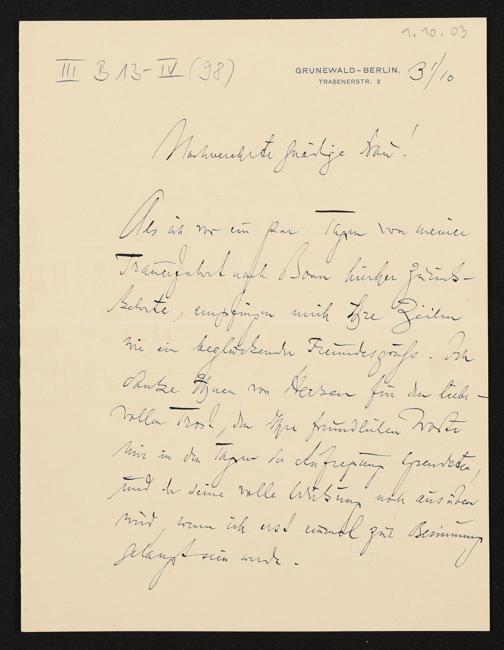 1.10.03
III B 13-IV (98)
GRUNEWALD-BERLIN.
TRABENERSTR. 2
1/10
Hochverehrte gnädige Frau!
Als ich vor ein par Tagen von meiner
Trauerfahrt nach Bonn hierher zurück-
kehrte, empfingen mich Ihre Zeilen
wie ein beglückender Freundesgruß. Ich
danke Ihnen von Herzen für den liebe-
vollen Trost, den Ihre freundlichen Worte
mir in den Tagen der Aufregung spendeten,
und der seine volle Wirkung noch ausüben
wird, wenn ich erst einmal zur Besinnung
gelangt sein werde.